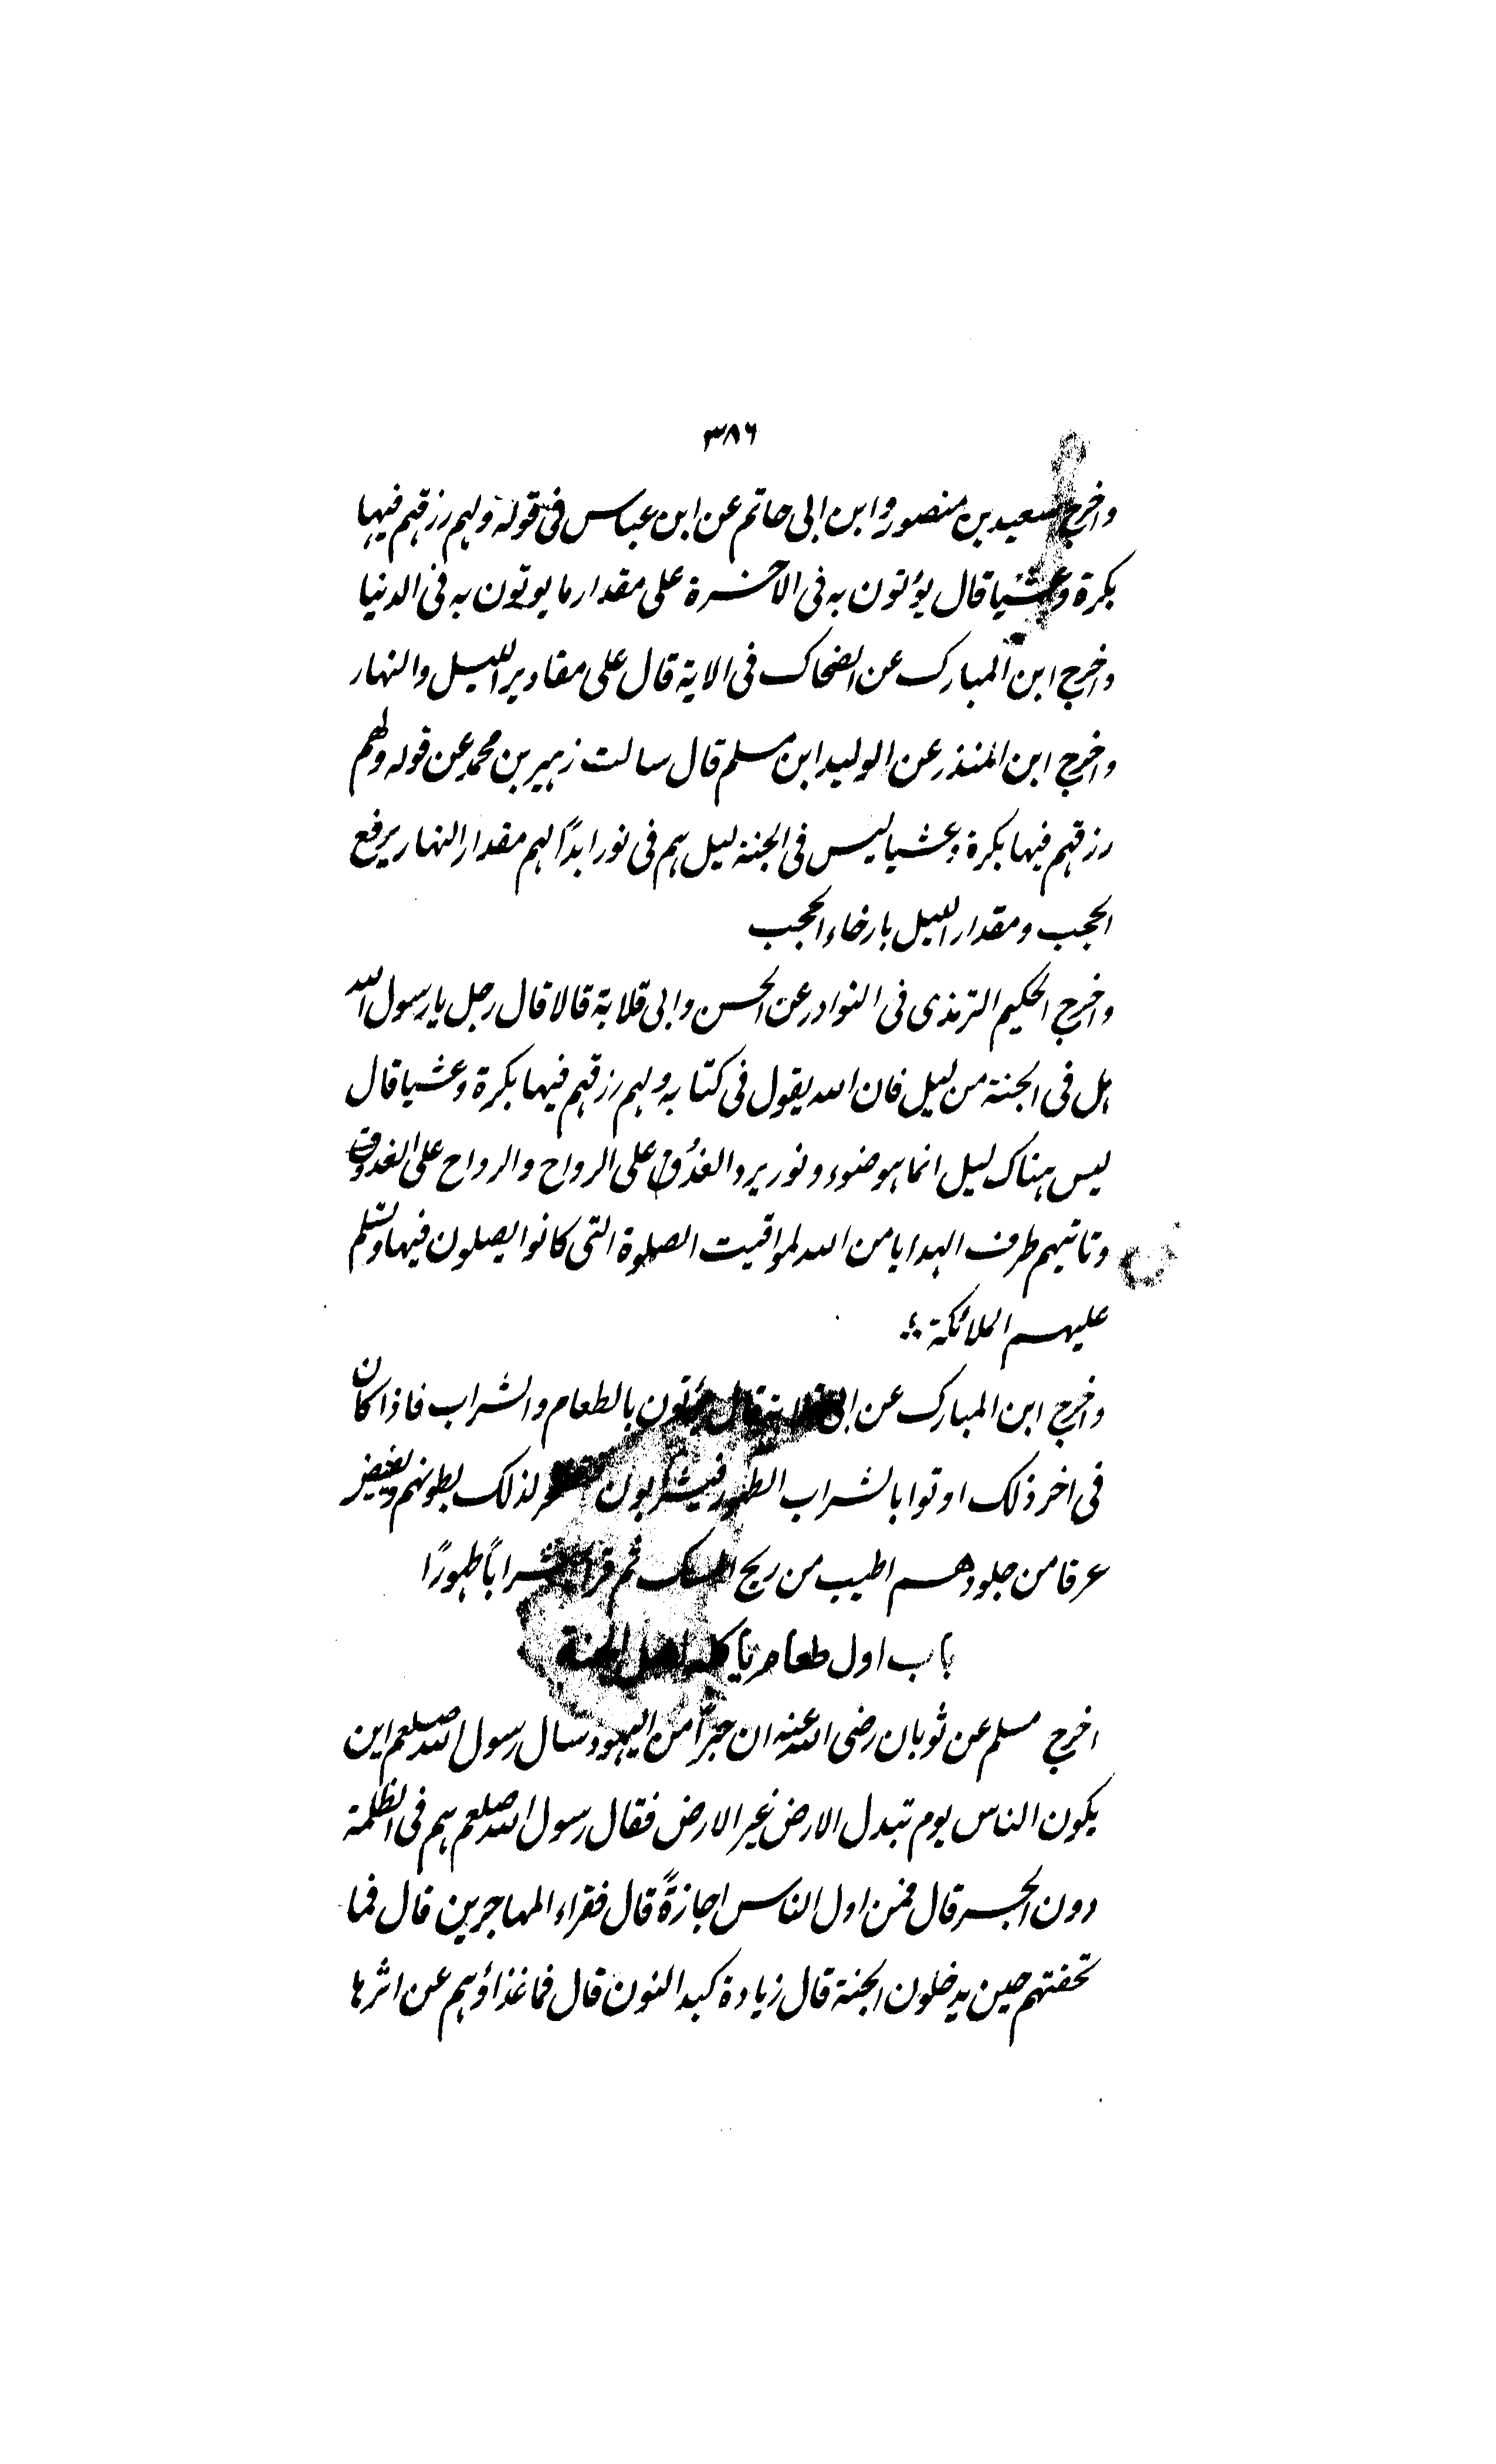 ٣٨٦
واخرج سعيد بن منصور وابن ابى حاتم عن ابن عباس فى قوله ولهم رزقهم فيها
بكرة وعشيا قال يؤتون به فى الاخرة على مقدار ما يوتون به فى الدنيا
واخرج ابن المبارك عن الضحاك فى الاية قال على مقادير الليل والنهار
واخرج ابن المنذر عن الوليد ابن مسلم قال سالت زهير بن محمد عن قوله ولهم
رزقهم فيها بكرة وعشيا ليس فى الجنة ليل هم فى نور ابدًا لهم مقدار النهار يرفع
الحجب ومقدار الليل بارخاء الحجب
واخرج الحكيم الترمذى فى النوادر عن الحسن وابى قلابة قالا قال رجل يا رسول الله
هل فى الجنة من ليل فان الله يقول فى كتابه ولهم رزقهم فيها بكرة وعشيا قال
ليس هناك ليل انما هو ضوء ونور يرد الغدو على الرواح والرواح على الغدو
وتاتيهم طرف الهدايا من الله لمواقيت الصلوة التى كانوا يصلون فيها وتسلم
عليهم الملائكة
واخرج ابن المبارك عن ابى قلابة قال يؤتون بالطعام والشراب فاذا كان
فى اخر ذلك اوتوا بالشراب الطهور فيشربون لذلك بطونهم ويفيض
عرقا من جلودهم اطيب من ريح المسك ثم قرأ شرابًا طهورًا
باب اول طعام يأكله اهل الجنة
اخرج مسلم عن ثوبان رضى الله عنه ان حبرًا من اليهود سال رسول الله صلعم اين
يكون الناس يوم تبدل الارض غير الارض فقال رسول الله صلعم هم فى الظلمة
دون الجسر قال فمن اول الناس اجازةً قال فقراء المهاجرين قال فما
تحفتهم حين يدخلون الجنة قال زيادة كبد النون قال فما غذاؤهم عن اثرها